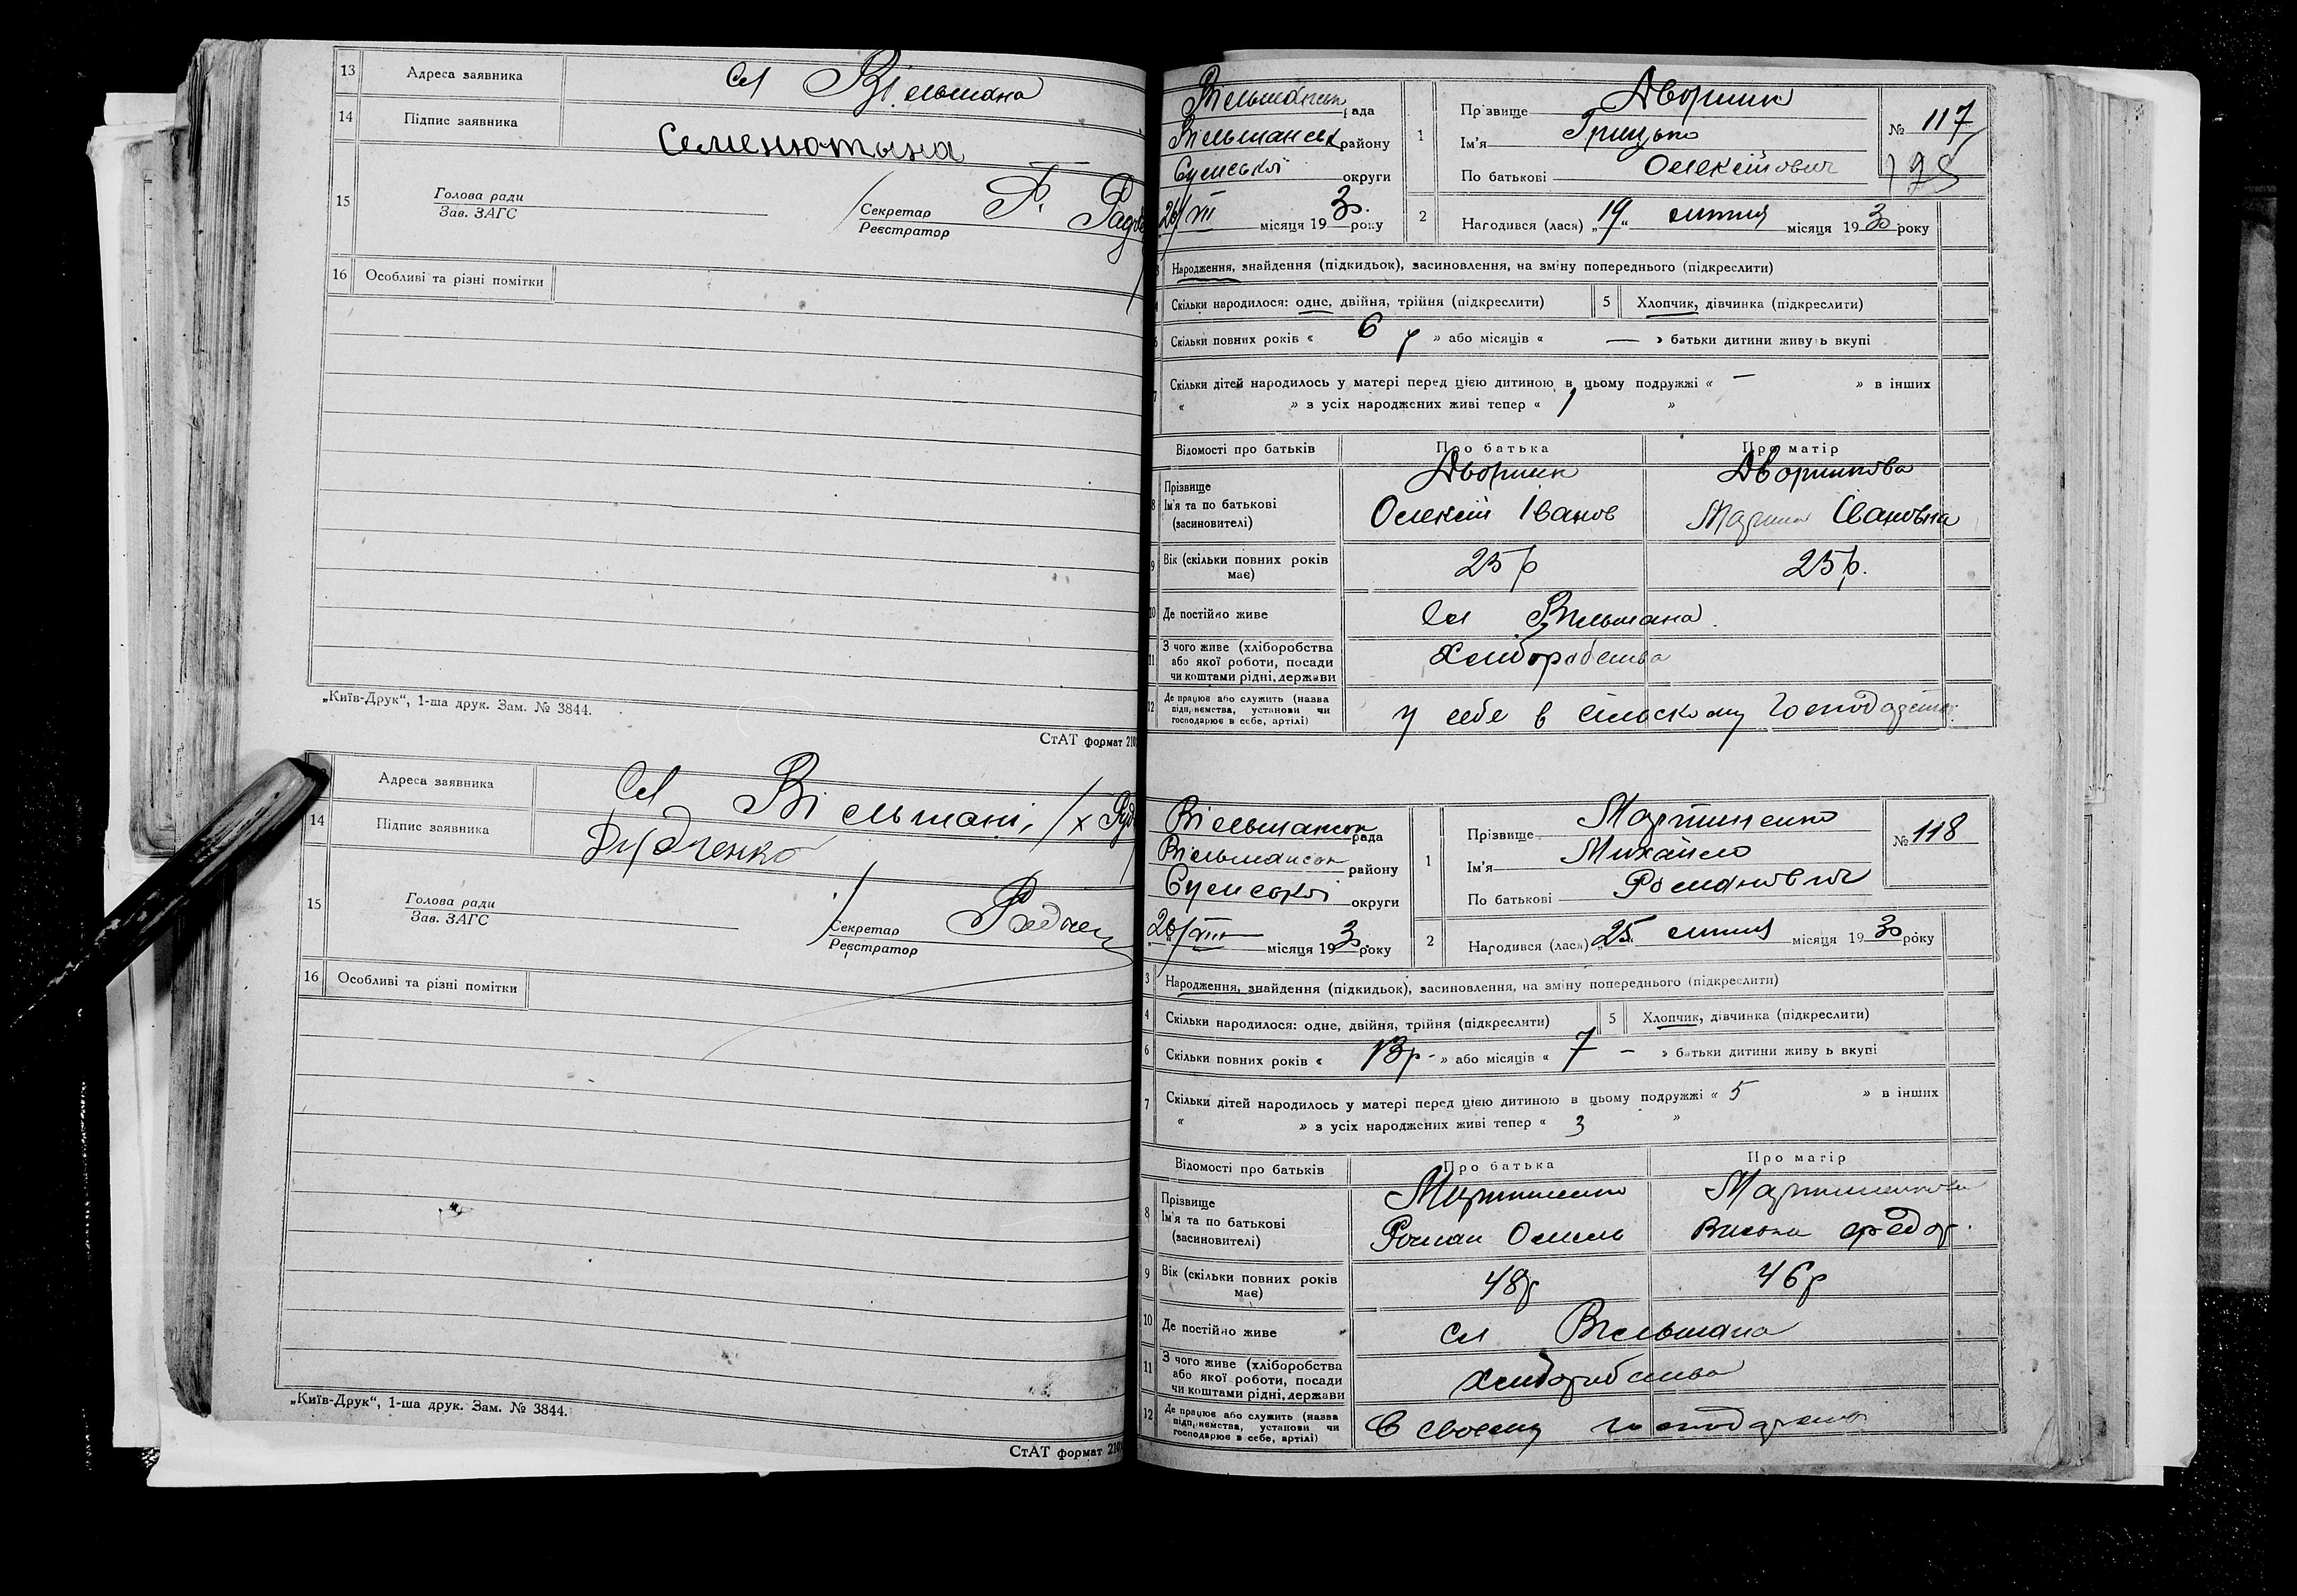 13 Адреса заявника Сел Вільшана
14 Підпис заявника Семенютына
15 Голова ради
Зав. ЗАГС
Секретар
Реєстратор
16 Особливі та різні помітки
„Київ-Друк“, 1-ша друк. Зам. № 3844.
СтАТ формат 210
Адреса заявника Сел Вільшані,
14 Підпис заявника Дудченко
15 Голова ради
Зав. ЗАГС
Секретар
Реєстратор
16 Особливі та різні помітки
„Київ-Друк“, 1-ша друк. Зам. № 3844.
СтАТ формат 210
Вільшанськ рада
Вільшанськ району
Сумської округи
26/VII місяця 1930 року
1 Прізвище Дворник
Ім'я Грицько
По батькові Олексійович
№ 117
2 Народився (лася) „19“ липня місяця 1930 року
Народження, знайдення (підкидьок), засиновлення, на зміну попереднього (підкреслити)
Скільки народилося: одне, двійня, трійня (підкреслити) 5 Хлопчик, дівчинка (підкреслити)
Скільки повних років « 6 р » або місяців « — » батьки дитини живуть вкупі
Скільки дітей народилось у матері перед цією дитиною в цьому подружжі « — » в інших
« » з усіх народжених живі тепер « 1 »
Відомості про батьків Про батька Про матір
8 Прізвище Дворник Дворникова
Ім'я та по батькові Олексій Іванов Марина Івановна
(засиновителі)
9 Вік (скільки повних років має) 25 р 25 р.
10 Де постійно живе Сел Вільшана
11 З чого живе (хліборобства або якої роботи, посади чи коштами рідні, держави Хліборобства
12 Де працює або служить (назва підприємства, установи чи господарює в себе, артілі) у себе в сільскому господарстві
Вільшанськ рада
Вільшанськ району
Сумської округи
26/VIII місяця 1930 року
1 Прізвище Мартиненко
Ім'я Михайло
По батькові Романович
№ 118
2 Народився (лася) „25“ липня місяця 1930 року
3 Народження, знайдення (підкидьок), засиновлення, на зміну попереднього (підкреслити)
4 Скільки народилося: одне, двійня, трійня (підкреслити) 5 Хлопчик, дівчинка (підкреслити)
6 Скільки повних років « 13 р - » або місяців « 7 — » батьки дитини живуть вкупі
7 Скільки дітей народилось у матері перед цією дитиною в цьому подружжі « 5 » в інших
« » з усіх народжених живі тепер « 3 »
Відомості про батьків Про батька Про матір
8 Прізвище Мартиненко Мартиненкова
Ім'я та по батькові Роман Федор.
(засиновителі)
9 Вік (скільки повних років має) 48 р 46 р
10 Де постійно живе Сел Вільшана
11 З чого живе (хліборобства або якої роботи, посади чи коштами рідні, держави Хліборобства
12 Де працює або служить (назва підприємства, установи чи господарює в себе, артілі) В своему господарстві